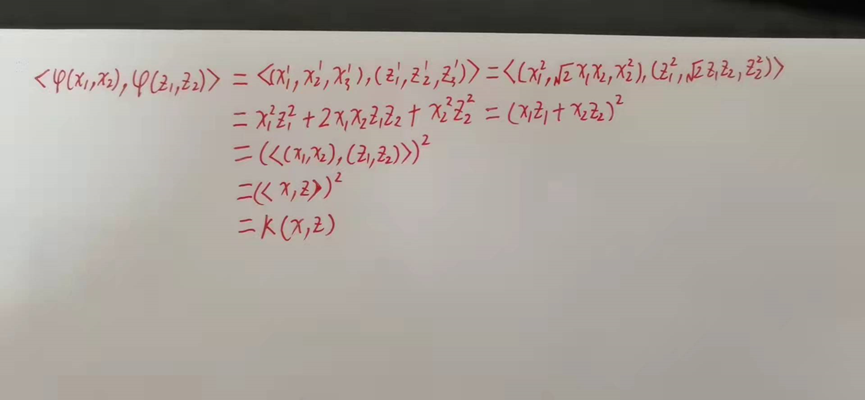 <φ(x₁,x₂),φ(z₁,z₂)> = <(x₁',x₂',x₃'),(z₁',z₂',z₃')> = <(x₁²,√2x₁x₂,x₂²),(z₁²,√2z₁z₂,z₂²)>
= x₁²z₁²+2x₁x₂z₁z₂+x₂²z₂² = (x₁z₁+x₂z₂)²
= (<(x₁,x₂),(z₁,z₂)>)²
=(<x,z>)²
= K(x,z)